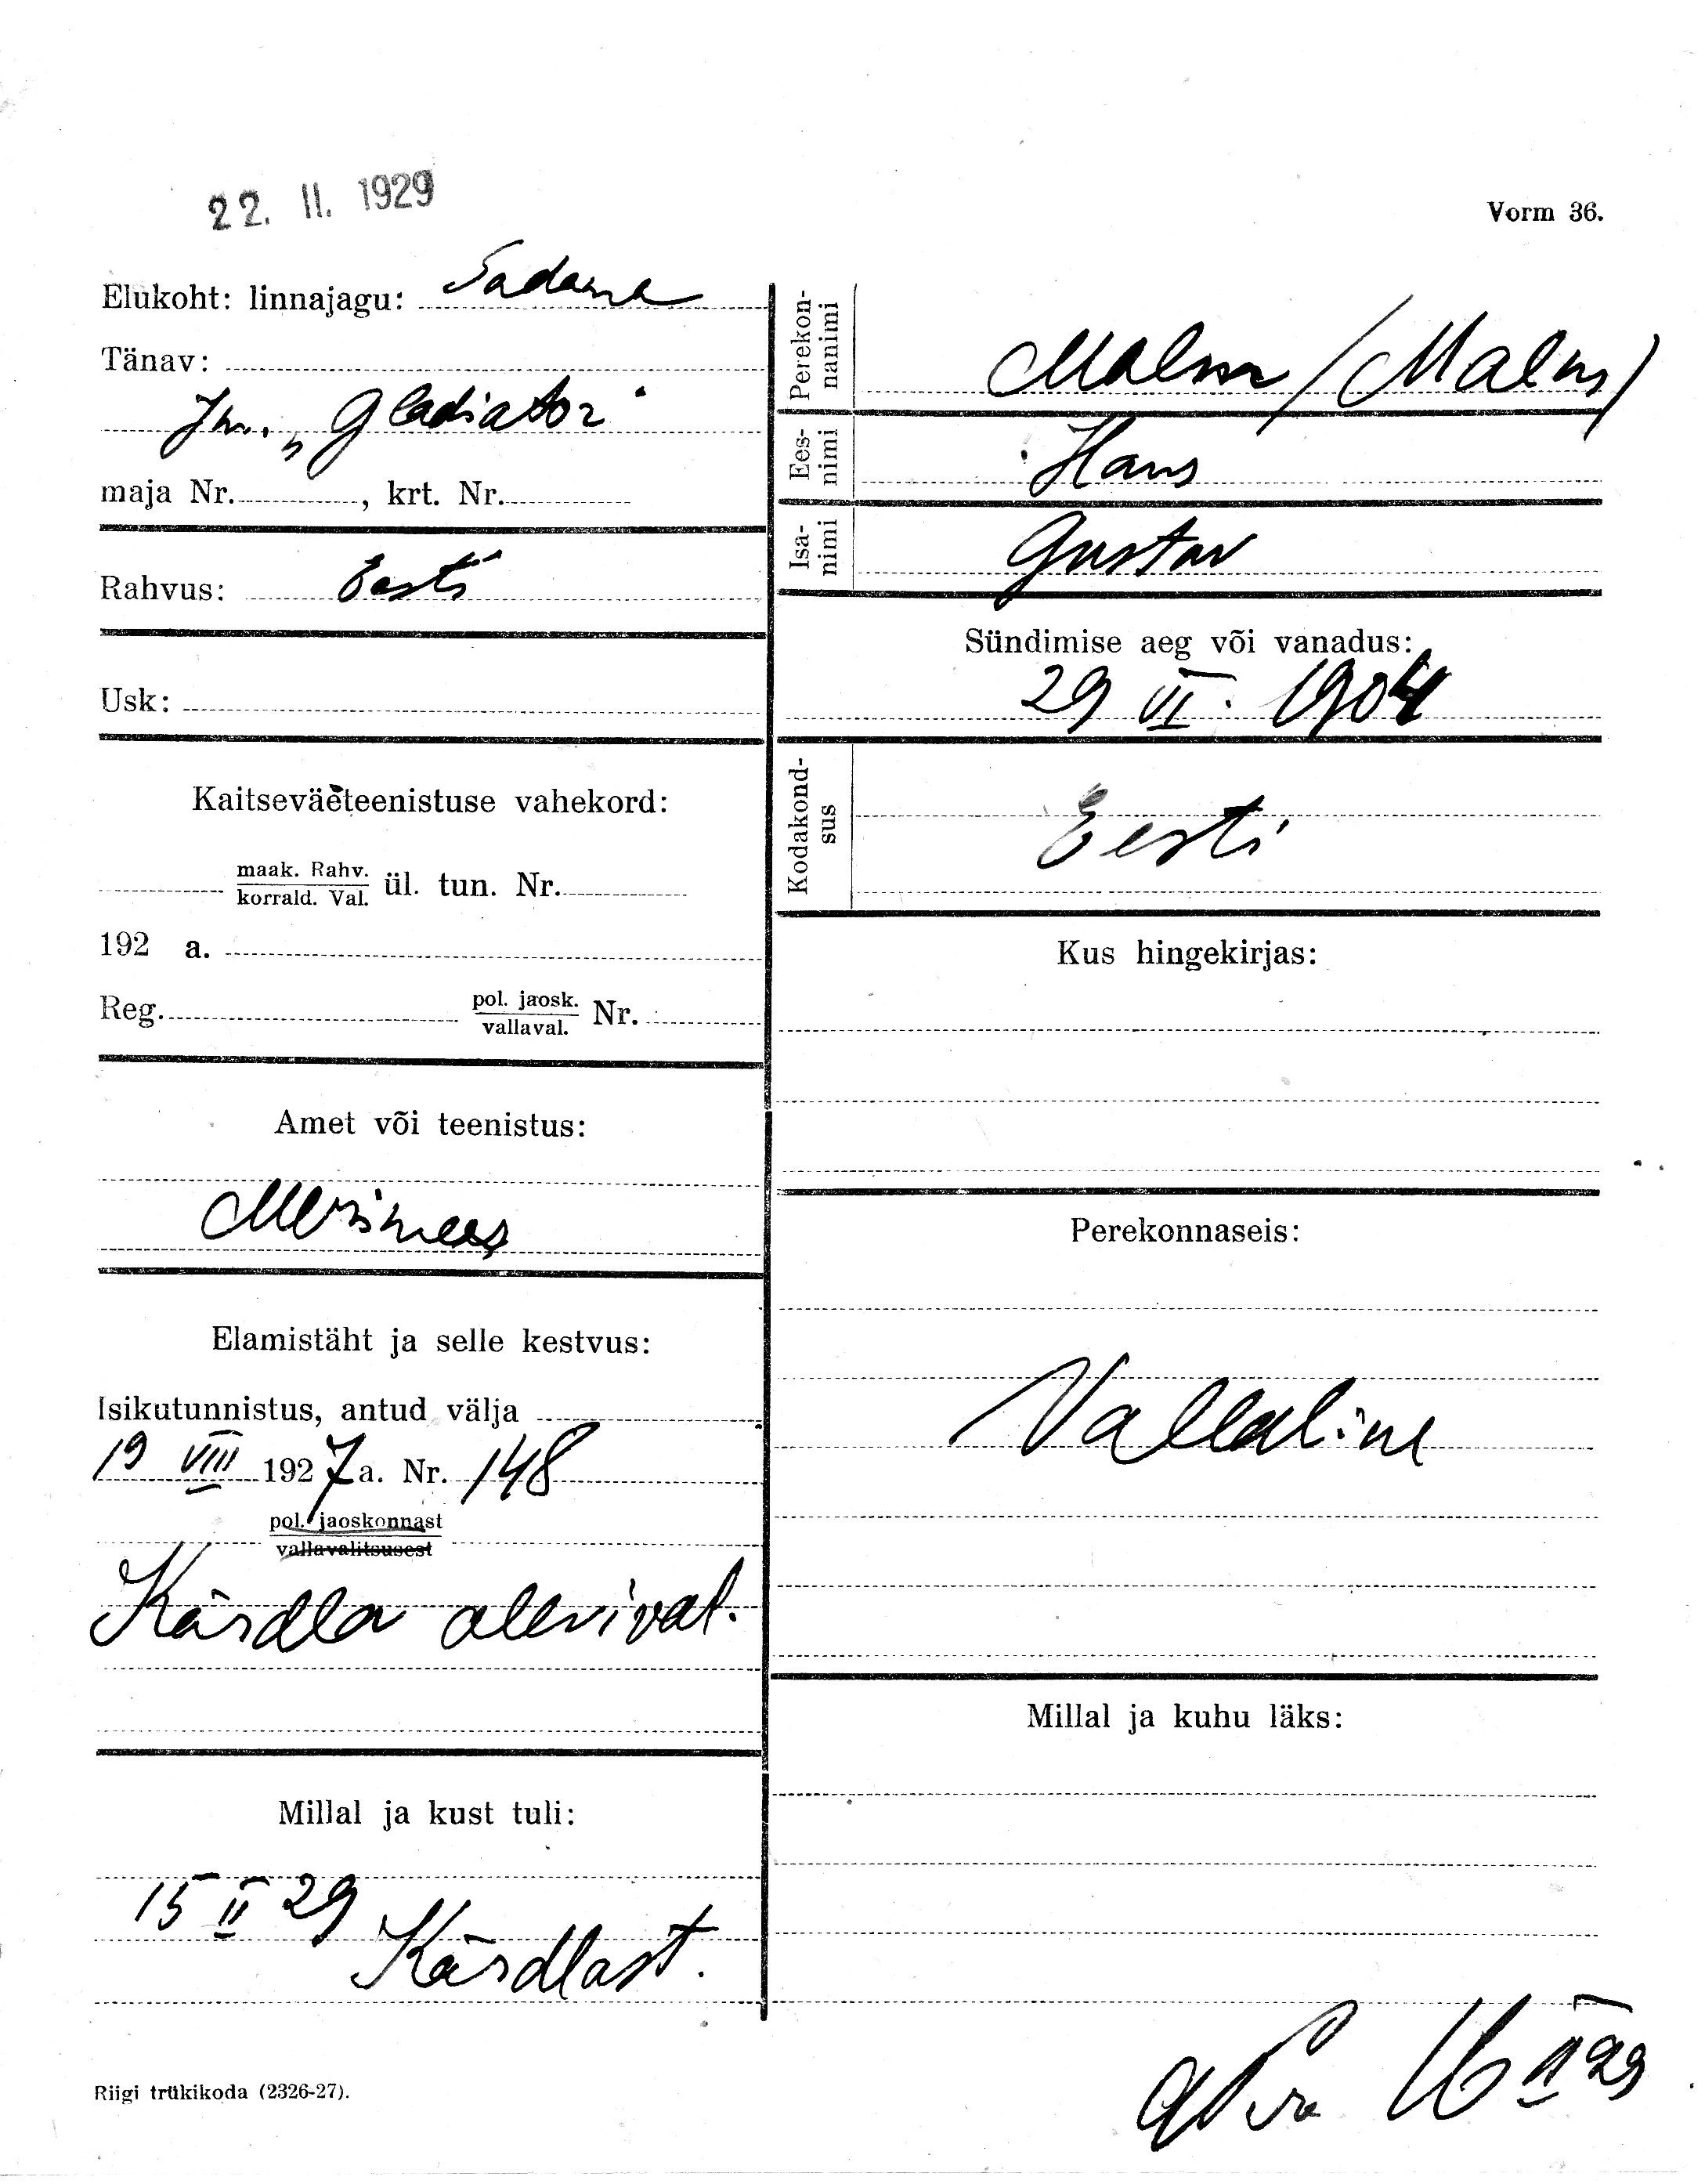 22. II. 1929
Vorm 36.
Elukoht: linnajagu: Sadama
Tänav:
Jm. „Gladiator"
maja Nr. , krt. Nr.
Rahvus: Eesti
Usk:
Kaitseväeteenistuse vahekord:
maak. Rahv.
korrald. Val. ül. tun. Nr.
192 a.
Reg. pol. jaosk.
vallaval. Nr.
Amet või teenistus:
Merimees
Elamistäht ja selle kestvus:
Isikutunnistus, antud välja
19 VIII 1927 a. Nr. 148
pol. jaoskonnast
vallavalitsusest
Kärdla alevival.
Millal ja kust tuli:
15 II 29
Kärdlast.
Riigi trükikoda (2326-27).
Perekon-
nanimi
Malm /Malm/
Ees-
nimi
Hans
Isa-
nimi
Gustav
Sündimise aeg või vanadus:
29 VI. 1904
Kodakond-
sus
Eesti
Kus hingekirjas:
Perekonnaseis:
Vallaline
Millal ja kuhu läks:
16 II 29